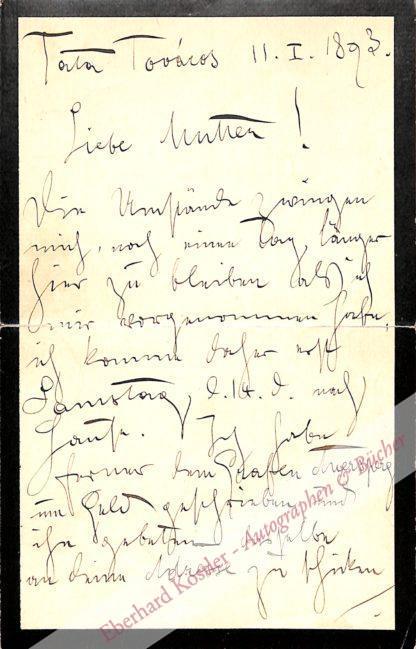 Tata Továros 11. I. 1893.
Liebe Mutter!
Die Umstände zwingen
mich, noch einen Tag länger
hier zu bleiben als ich
mir vorgenommen habe,
ich komme daher erst
Samstag, d. 14. d. nach
Hause. Ich habe
ferner dem Grafen Auersperg
um Geld geschrieben und
ihn gebeten dasselbe
an deine Adresse zu schicken
Eberhard Köstler - Autographen & Bücher